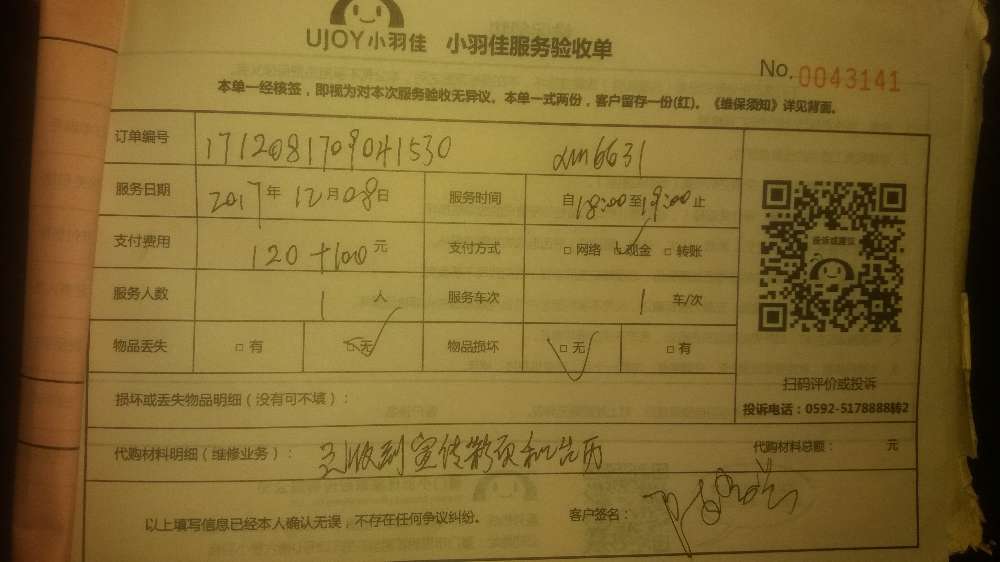 UJOY小羽佳 小羽佳服务验收单
No. 0043141
本单一经核签，即视为对本次服务验收无异议。本单一式两份，客户留存一份(红)。《维保须知》详见背面。
订单编号 1712081709041530 xm6631
服务日期 2017年 12月08日 服务时间 自18:00至19:00止
支付费用 120+100元 支付方式 □ 网络 □ 现金 □ 转账
投诉或建议
服务人数 1 人 服务车次 1 车/次
物品丢失 □ 有 □ 无 物品损坏 □ 无 □ 有
扫码评价或投诉
损坏或丢失物品明细（没有可不填）：
投诉电话：0592-5178888转2
代购材料明细（维修业务）： 已收到宣传彩页和台历 代购材料总额： 元
以上填写信息已经本人确认无误，不存在任何争议纠纷。 客户签名：